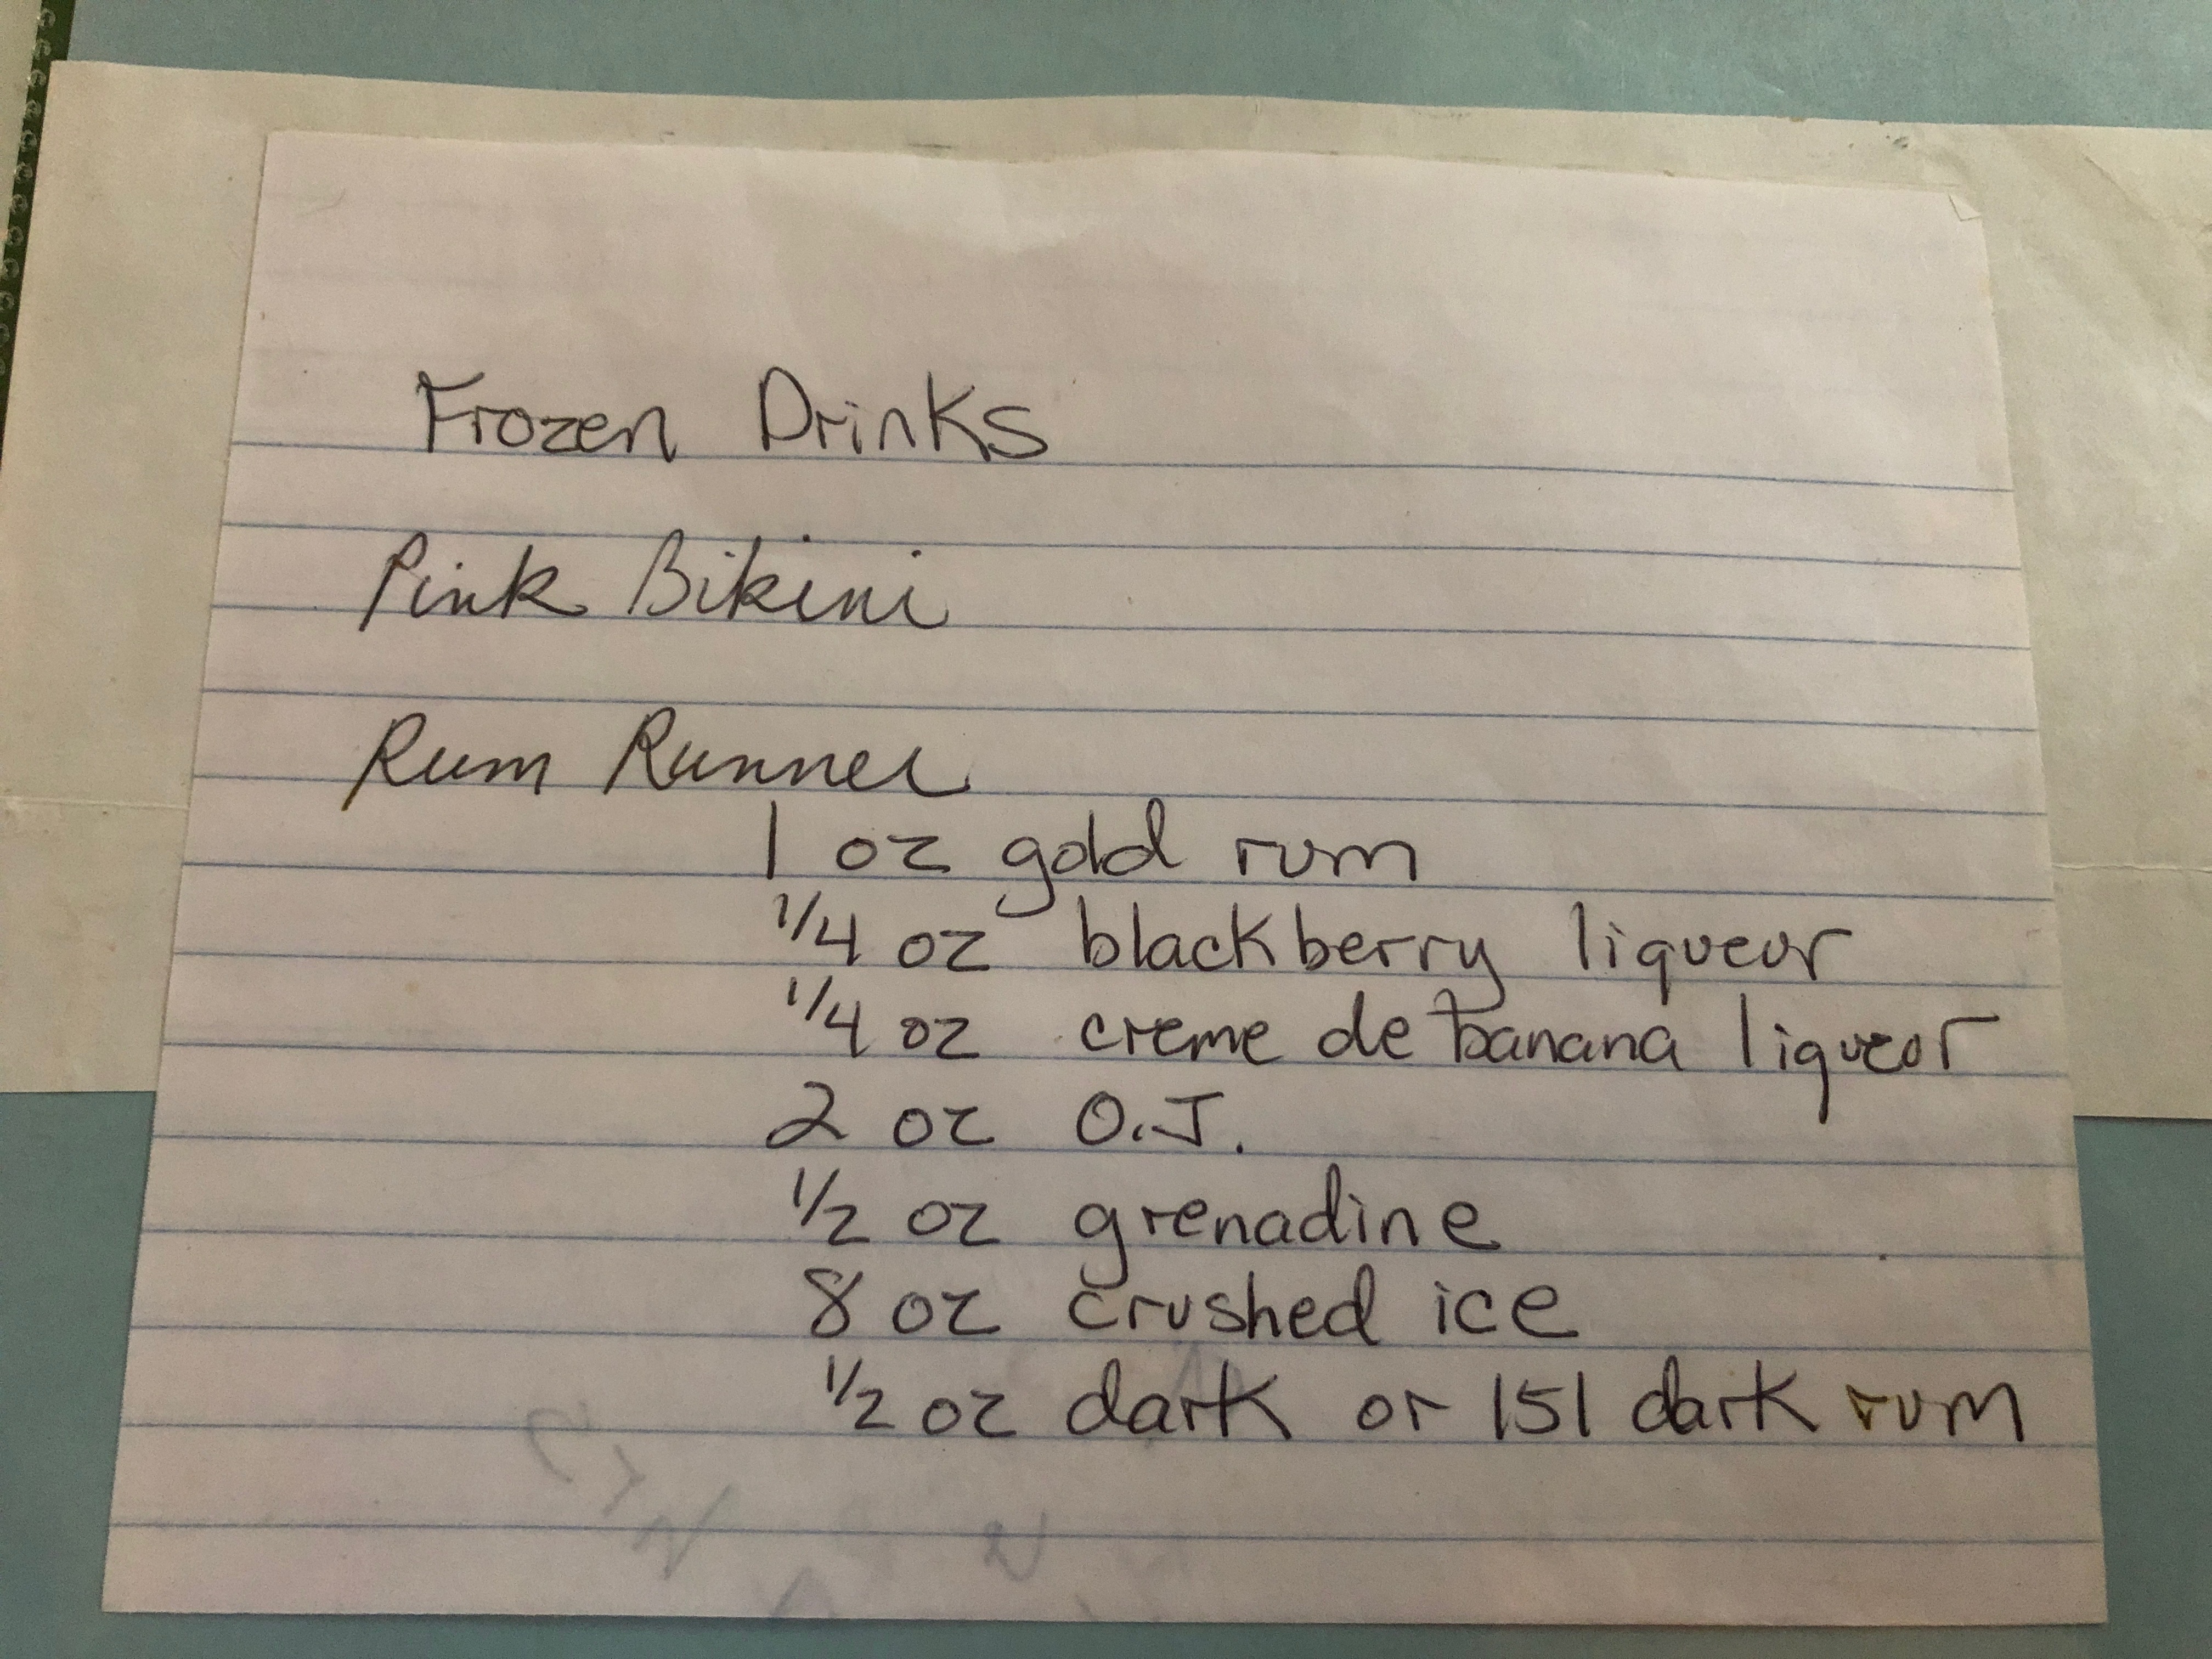 Frozen Drinks
Pink Bikini
Rum Runner
1 oz gold rum
1/4 oz blackberry liqueur
1/4 oz creme de banana liqueor
2 oz O.J.
1/2 oz grenadine
8 oz crushed ice
1/2 oz dark or 151 dark rum